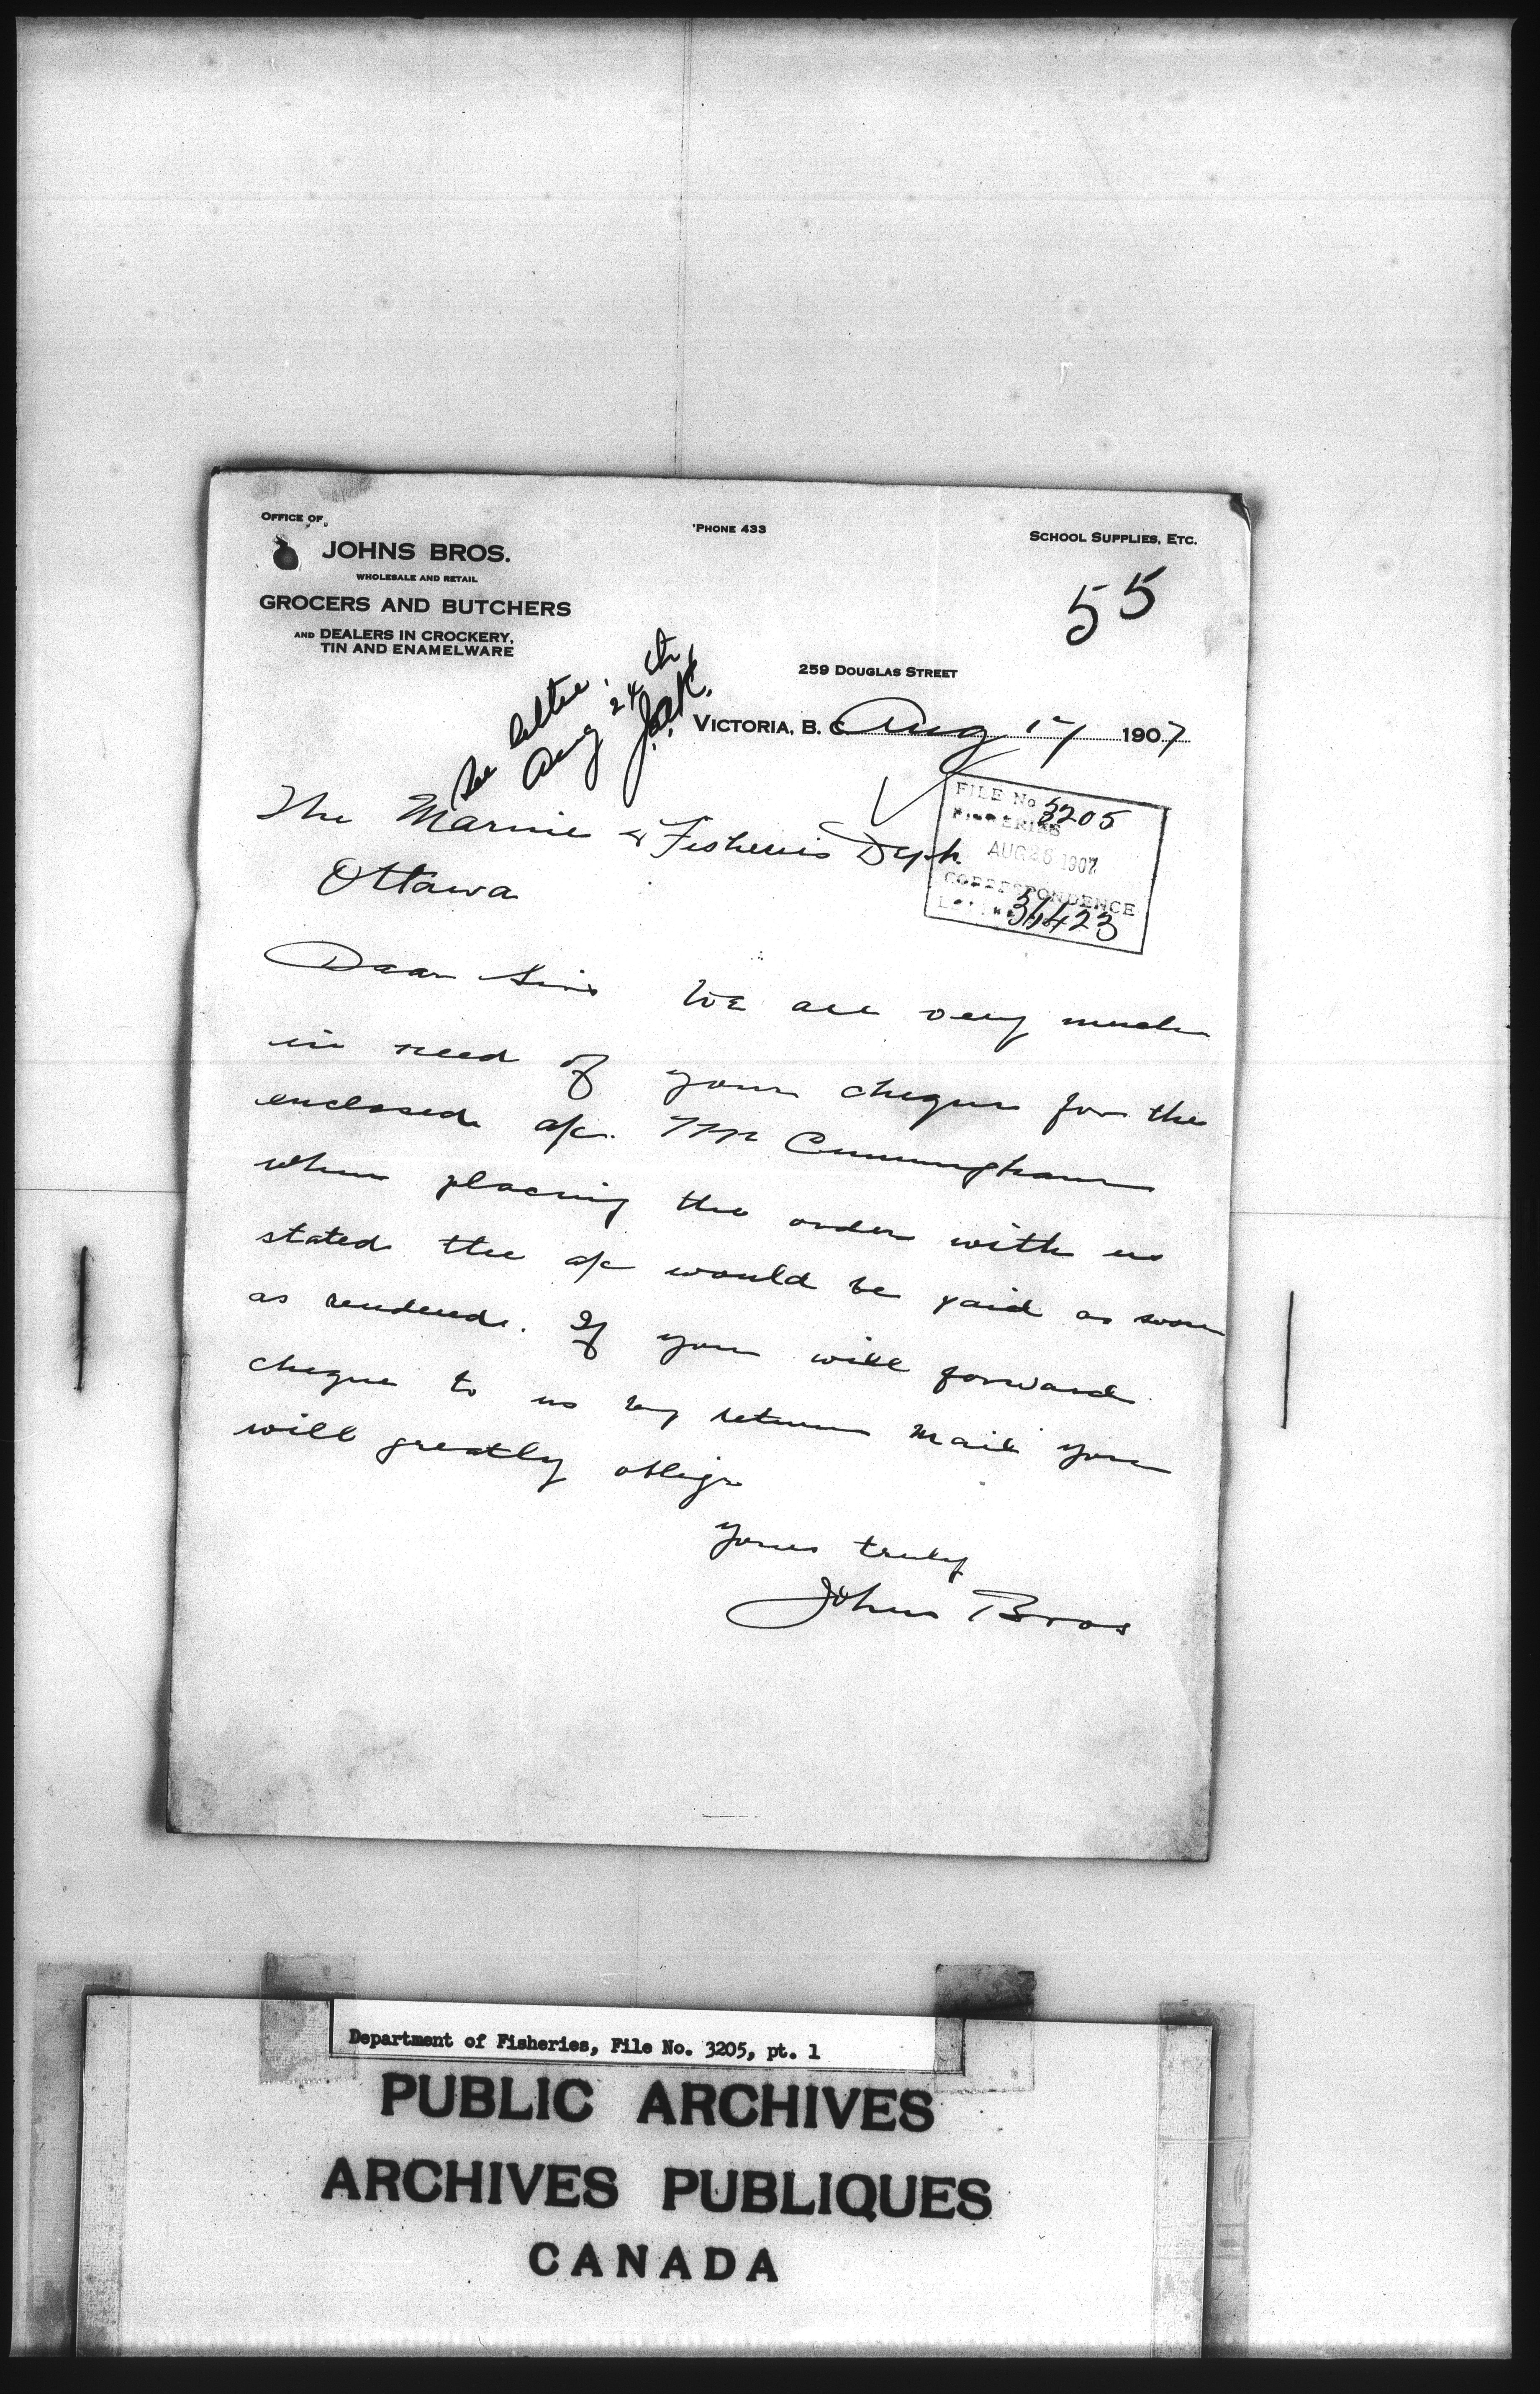 OFFICE OF
'PHONE 433
SCHOOL SUPPLIES, ETC.
JOHNS BROS.
WHOLESALE AND RETAIL
GROCERS AND BUTCHERS
AND DEALERS IN CROCKERY,
TIN AND ENAMELWARE
55
259 DOUGLAS STREET
See letter
Aug 24th
VICTORIA, B. C. Aug 17 1907
FILE No 3205
FISHERIES
AUG 26 1907
CORRESPONDENCE
The Marine & Fisheries Dept.
Ottawa
Dear Sirs We are very much
in need of your cheque for the
enclosed a/c. Mr Cunningham
when placing the order with us
stated the a/c would be paid as soon
as rendered. If you will forward
cheque to us by return mail you
will greatly oblige
yours truly
Johns Bros
Department of Fisheries, File No. 3205, pt. 1
PUBLIC ARCHIVES
ARCHIVES PUBLIQUES
CANADA